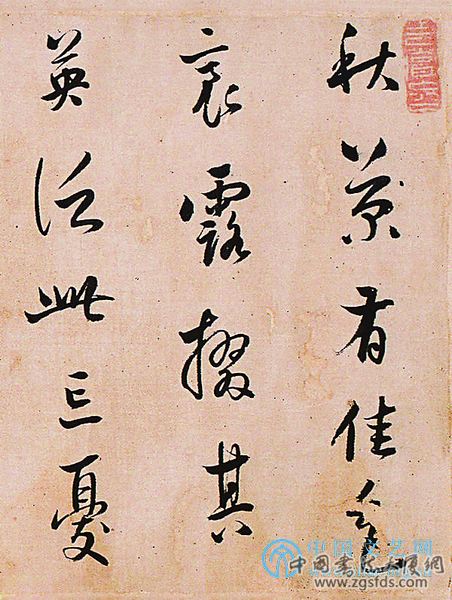 秋菊有佳色
裛露掇其
英泛此忘憂
中国文艺网
www.zgsfds.com